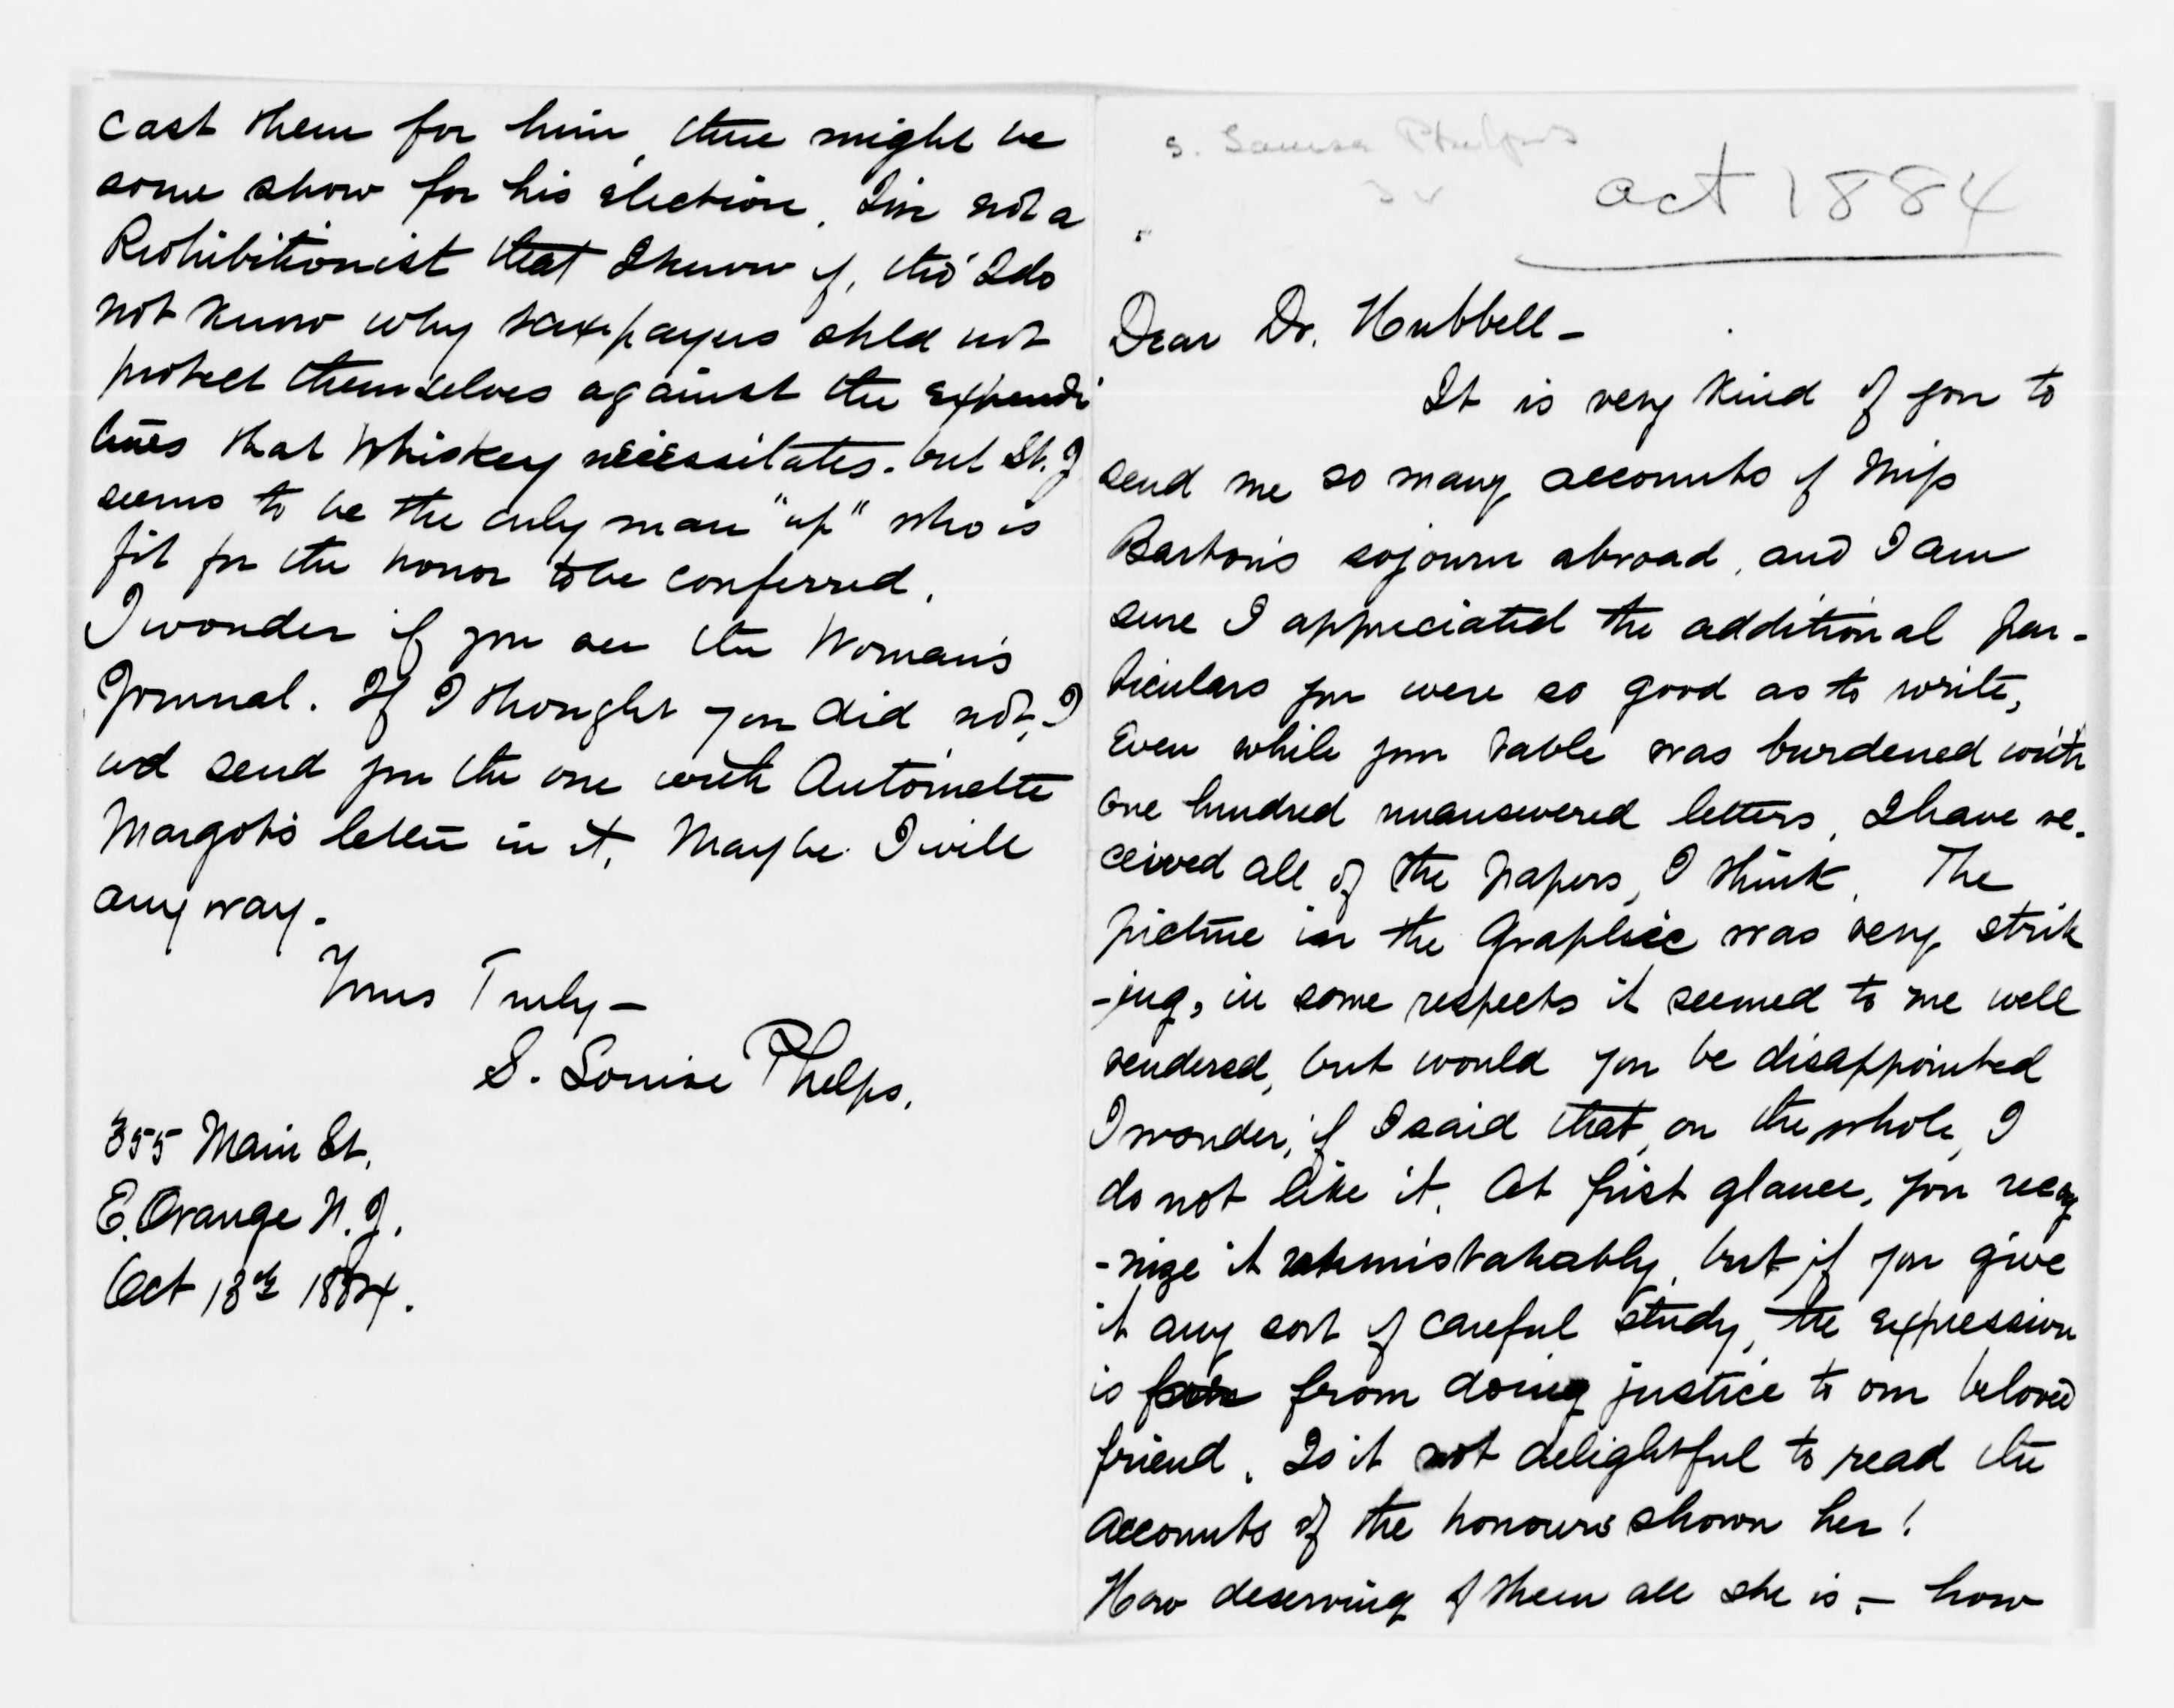 cast them for him, there might be
some show for his election. I'm not a
Prohibitionist that I know of, tho' I do
not know why taxpayers shld not
protect themselves against the expendi
tures that Whiskey necessitates. but St. J
seems to be the only man "up" who is
fit for the honor to be conferred.
I wonder if you see the Woman's
Journal. If I thought you did not, I
wd send you the one with Antoinette
Margot's letter in it. Maybe I will
any way.
Yours Truly —
S. Louise Phelps.
355 Main St.
E. Orange N.J.
Oct 13th 1884.
S. Louisa Phelps
Oct 1884
Dear Dr. Hubbell —
It is very kind of you to
send me so many accounts of Miss
Barton's sojourn abroad, and I am
sure I appreciated the additional par-
ticulars you were so good as to write,
Even while your table was burdened with
one hundred unanswered letters, I have re-
ceived all of the papers, I think. The
picture in the Graphic was very strik
-ing, in some respects it seemed to me well
rendered, but would you be disappointed
I wonder, if I said that, on the whole, I
do not like it. At first glance, you recog
-nize it unmistakably, but if you give
it any sort of careful study, the expression
is far from doing justice to our beloved
friend. Is it not delightful to read the
accounts of the honours shown her!
How deserving of them all she is, — how